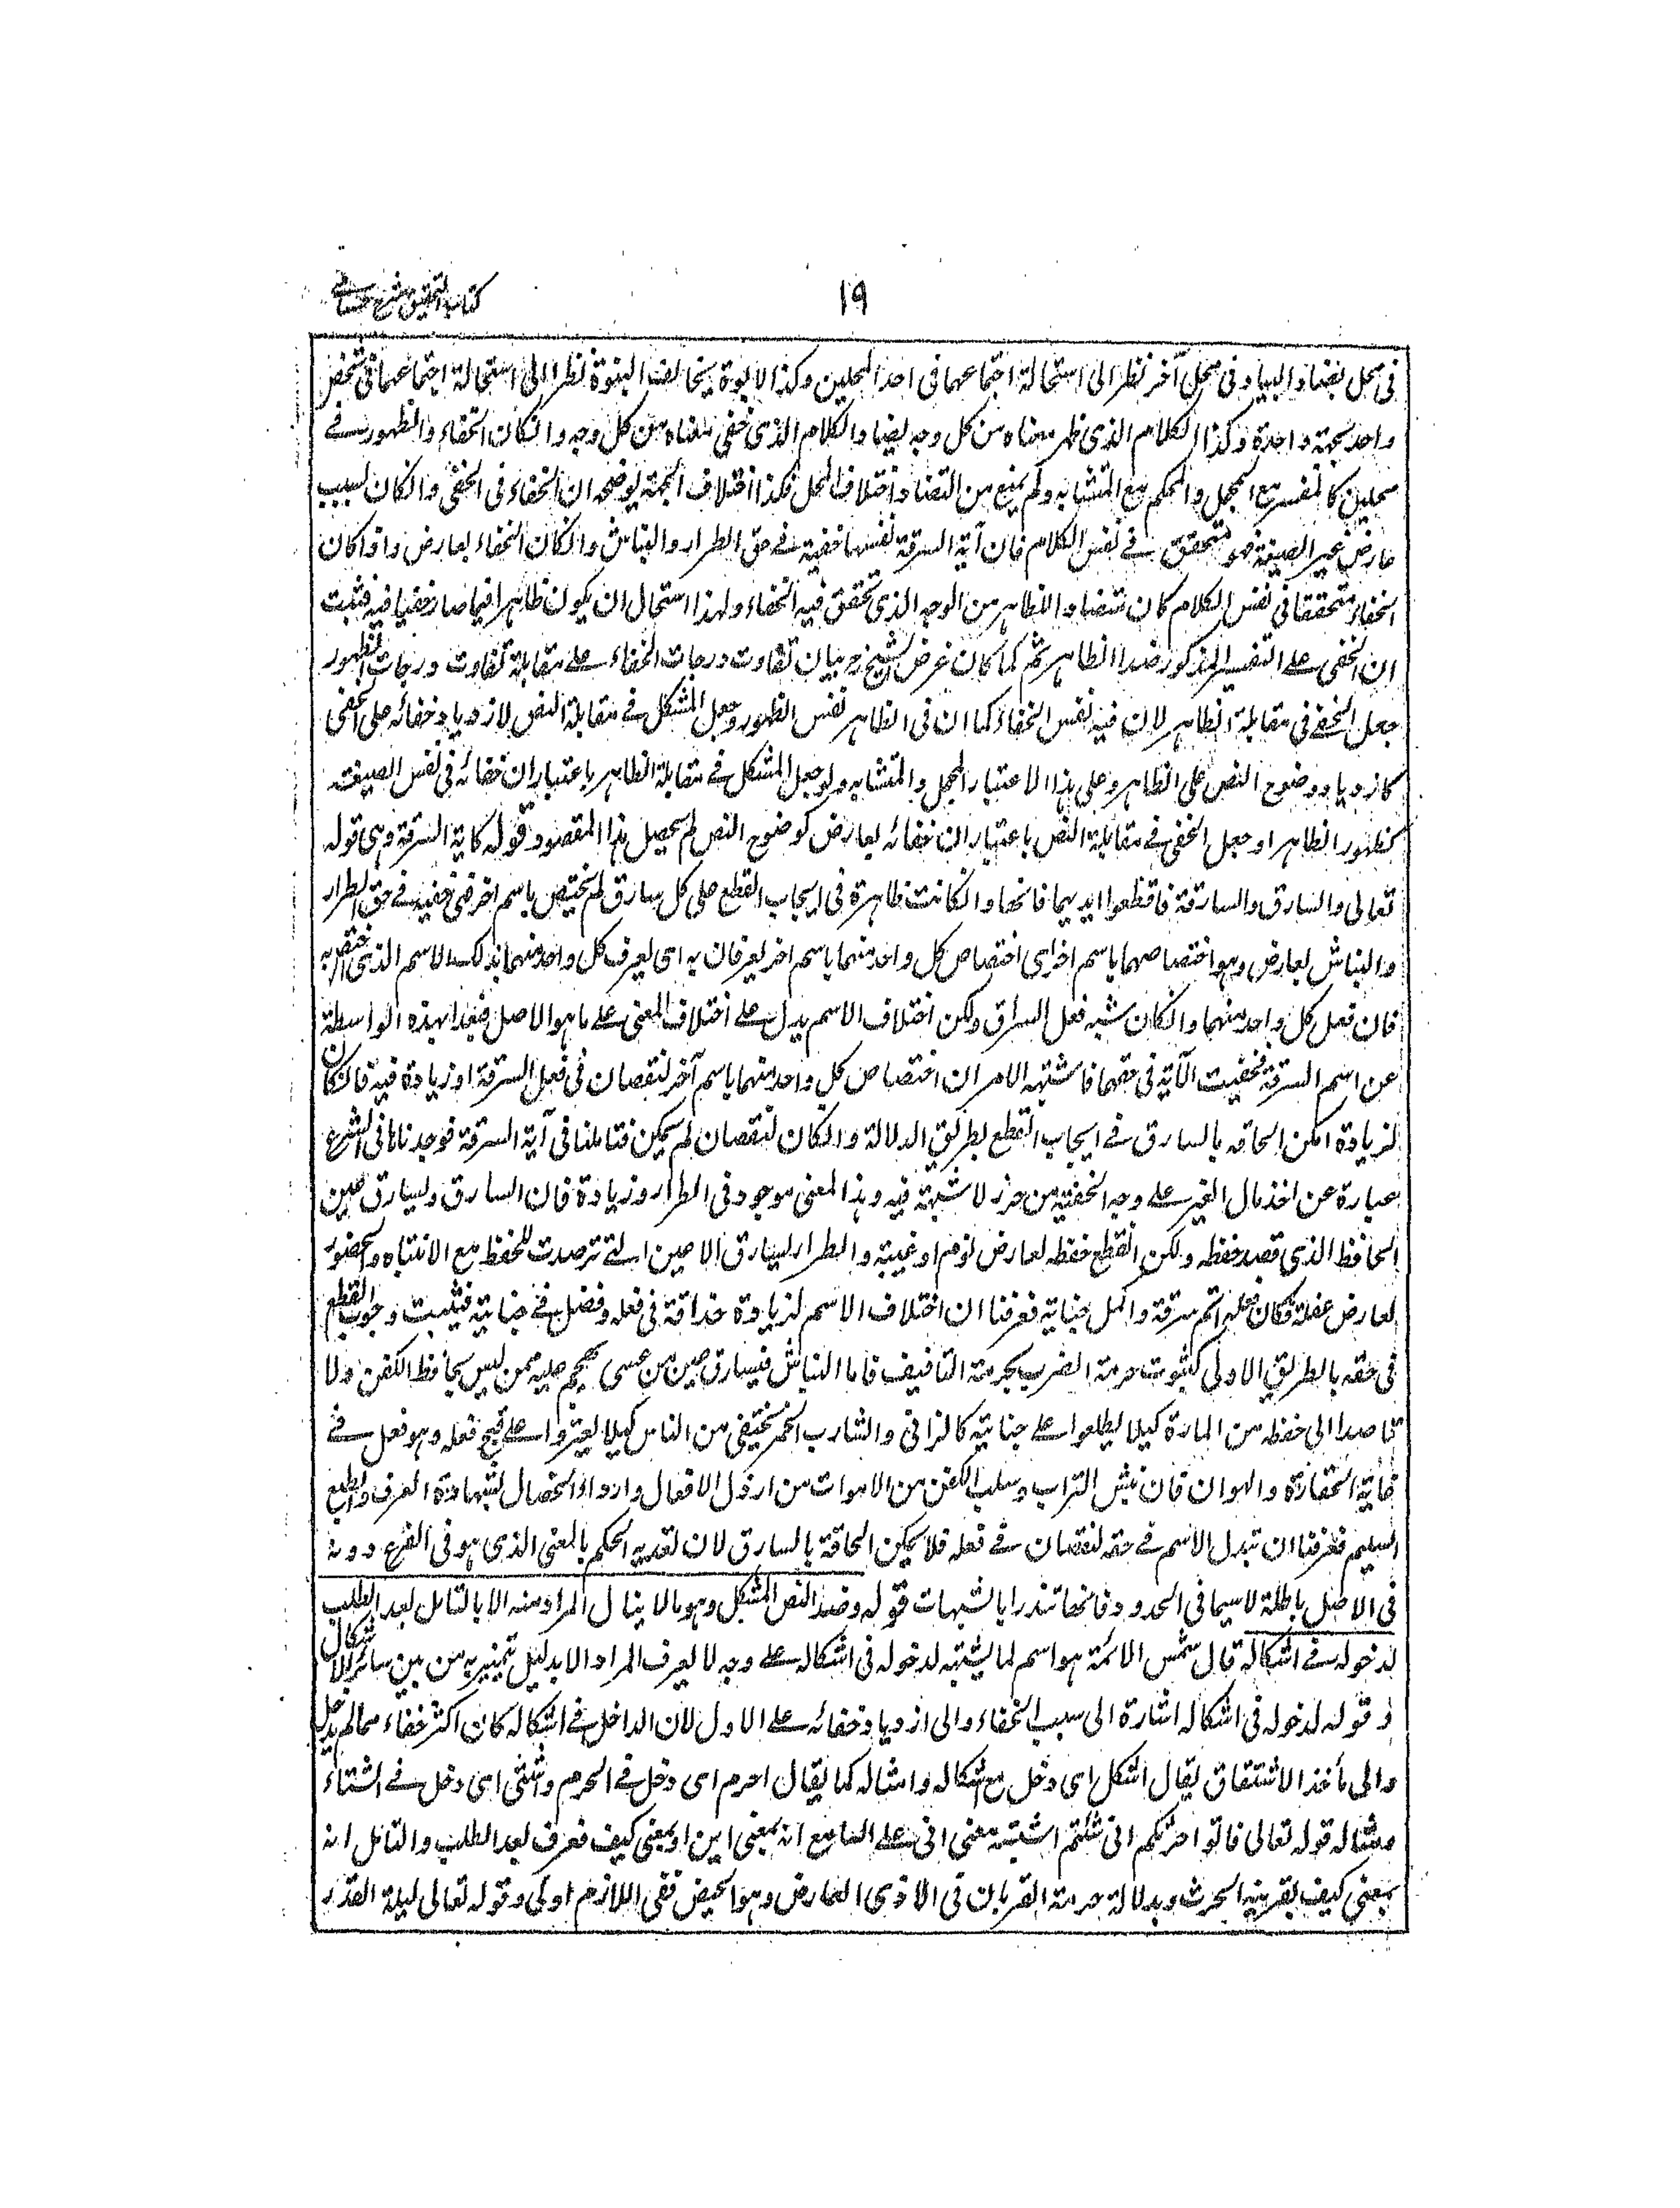 ١٩
كتاب التحقيق شرح حسامى
فى محل يضاد البياض فى محل آخر نظرا الى استحالة اجتماعهما فى احد المحلين وكذا الابوة يخالفها البنوة نظرا الى استحالة اجتماعهما فى شخص
واحد بجهة واحدة وكذا الكلام الذى ظهر معناه من كل وجه يضاد الكلام الذى خفى معناه من كل وجه وانكان الخفاء والظهور فے
محلين كالمفسر مع المجمل والمحكم مع المتشابه ولم يمنع من التضاد اختلاف المحل فكذا اختلاف الجهة يوضحه ان الخفاء فى الخفى وانكان لسبب
عارض غير الصيغة فهو متحقق فے نفس الكلام فان آية السرقة نفسها خفية فے حق الطرار والنباش وانكان الخفاء لعارض واذا كان
الخفاء متحققا فى نفس الكلام كان متضادا للظاهر من الوجه الذى تحقق فيه الخفاء ولهذا استحال ان يكون ظاهرا فيما صار خفيا فيه فثبت
ان الخفى على التفسير المذكور ضد الظاهر ثم لما كان غرض الشيخ رح بيان تفاوت درجات الخفاء على مقابلة تفاوت درجات الظهور
جعل الخفے فى مقابلة الظاهر لان فيه نفس الخفاء كما ان فى الظاهر نفس الظهور وجعل المشكل فے مقابلة النص لازدياد خفائه على الخفى
كازدياد وضوح النص على الظاهر وعلى هذا الاعتبار المجمل والمتشابه ولو جعل المشكل فے مقابلة الظاهر باعتبار ان خفائه فى نفس الصيغة
كظهور الظاهر او جعل الخفى فے مقابلة النص باعتبار ان خفائه لعارض كوضوح النص لم يحصل هذا المقصود قوله كآية السرقة وهى قوله
تعالى والسارق والسارقة فاقطعوا ايديهما فانها وانكانت ظاهرة فى ايجاب القطع على كل سارق لم يختص باسم اخر فهى خفية فے حق الطرار
والنباش لعارض وهو اختصاصهما باسم اخر اى اختصاص كل واحد منهما باسم اخر يعرفان به اى يعرف كل واحد منهما بذلك الاسم الذى اختص به
فان فعل كل واحد منهما وانكان شبه فعل السراق ولكن اختلاف الاسم يدل على اختلاف المعنى على ما هو الاصل فبعدا بهذه الواسطة
عن اسم السرقة فخفيت الآية فى حقهما فاشتبه الامر ان اختصاص كل واحد منهما باسم آخر لنقصان فى فعل السرقة او زيادة فيه فانكان
لزيادة امكن الحاقه بالسارق فے ايجاب القطع بطريق الدلالة وانكان لنقصان لم يمكن فتاملنا فى آية السرقة فوجدناها فى الشرع
عبارة عن اخذ مال الغير على وجه الخفية من حرز لا شبهة فيه وهذا المعنى موجود فى الطرار وزيادة فان السارق يسارق عين
الحافظ الذى قصد حفظه ولكن انقطع حفظه لعارض نوم او غيبة والطرار يسارق الاعين التے ترصدت للحفظ مع الانتباه والحضور
لعارض غفلة فكان فعله اتم سرقة واكمل جناية فعرفنا ان اختلاف الاسم لزيادة حذاقة فى فعله وفضل فے جناية فيثبت وجوب القطع
فى حقه بالطريق الاولى كثبوت حرمة الضرب بحرمة التافيف فاما النباش فيسارق عين من عسى يهجم عليه ممن ليس بحافظ الكفن ولا
قاصدا الى حفظه من المارة كيلا يطلعوا على جنايته كالزانى والشارب الخمر يختفى من الناس كيلا يعثروا على قبح فعله وهو فعل فے
غاية الحقارة والهوان فان نبش التراب وسلب الكفن من الاموات من ارذل الافعال واردأ الخصال بشهادة العرف والطبع
السليم فعرفنا ان تبدل الاسم فے حقه لنقصان فے فعله فلا يمكن الحاقه بالسارق لان تعدية الحكم بالمعنى الذى هو فى الفرع دونه
فى الاصل باطلة لاسيما فى الحدود فانها تندرا بالشبهات قوله وضد النص المشكل وهو ما لا ينال المراد منه الا بالتامل بعد الطلب
لدخوله فے اشكاله قال شمس الائمة هو اسم لما يشتبه لدخوله فى اشكاله على وجه لا يعرف المراد الا بدليل يتميز به من بين سائر الاشكال
و قوله لدخوله فى اشكاله اشارة الى سبب الخفاء والى ازدياد خفائه على الاول لان الداخل فے اشكاله كان اكثر خفاء مما لم يدخل
والى مأخذ الاشتقاق يقال اشكل اى دخل مع اشكاله وامثاله كما يقال احرم اى دخل فے الحرم واشتى اى دخل فے الشتاء
مثاله قوله تعالى فاتوا حرثكم انى شئتم اشتبه معنى انى على السامع انه بمعنى اين او بمعنى كيف فعرف بعد الطلب والتامل انه
بمعنى كيف بقرينه الحرث وبدلالة حرمة القربان فى الاذى العارض وهو الحيض ففى اللازم اولى وقوله تعالى ليلة القدر